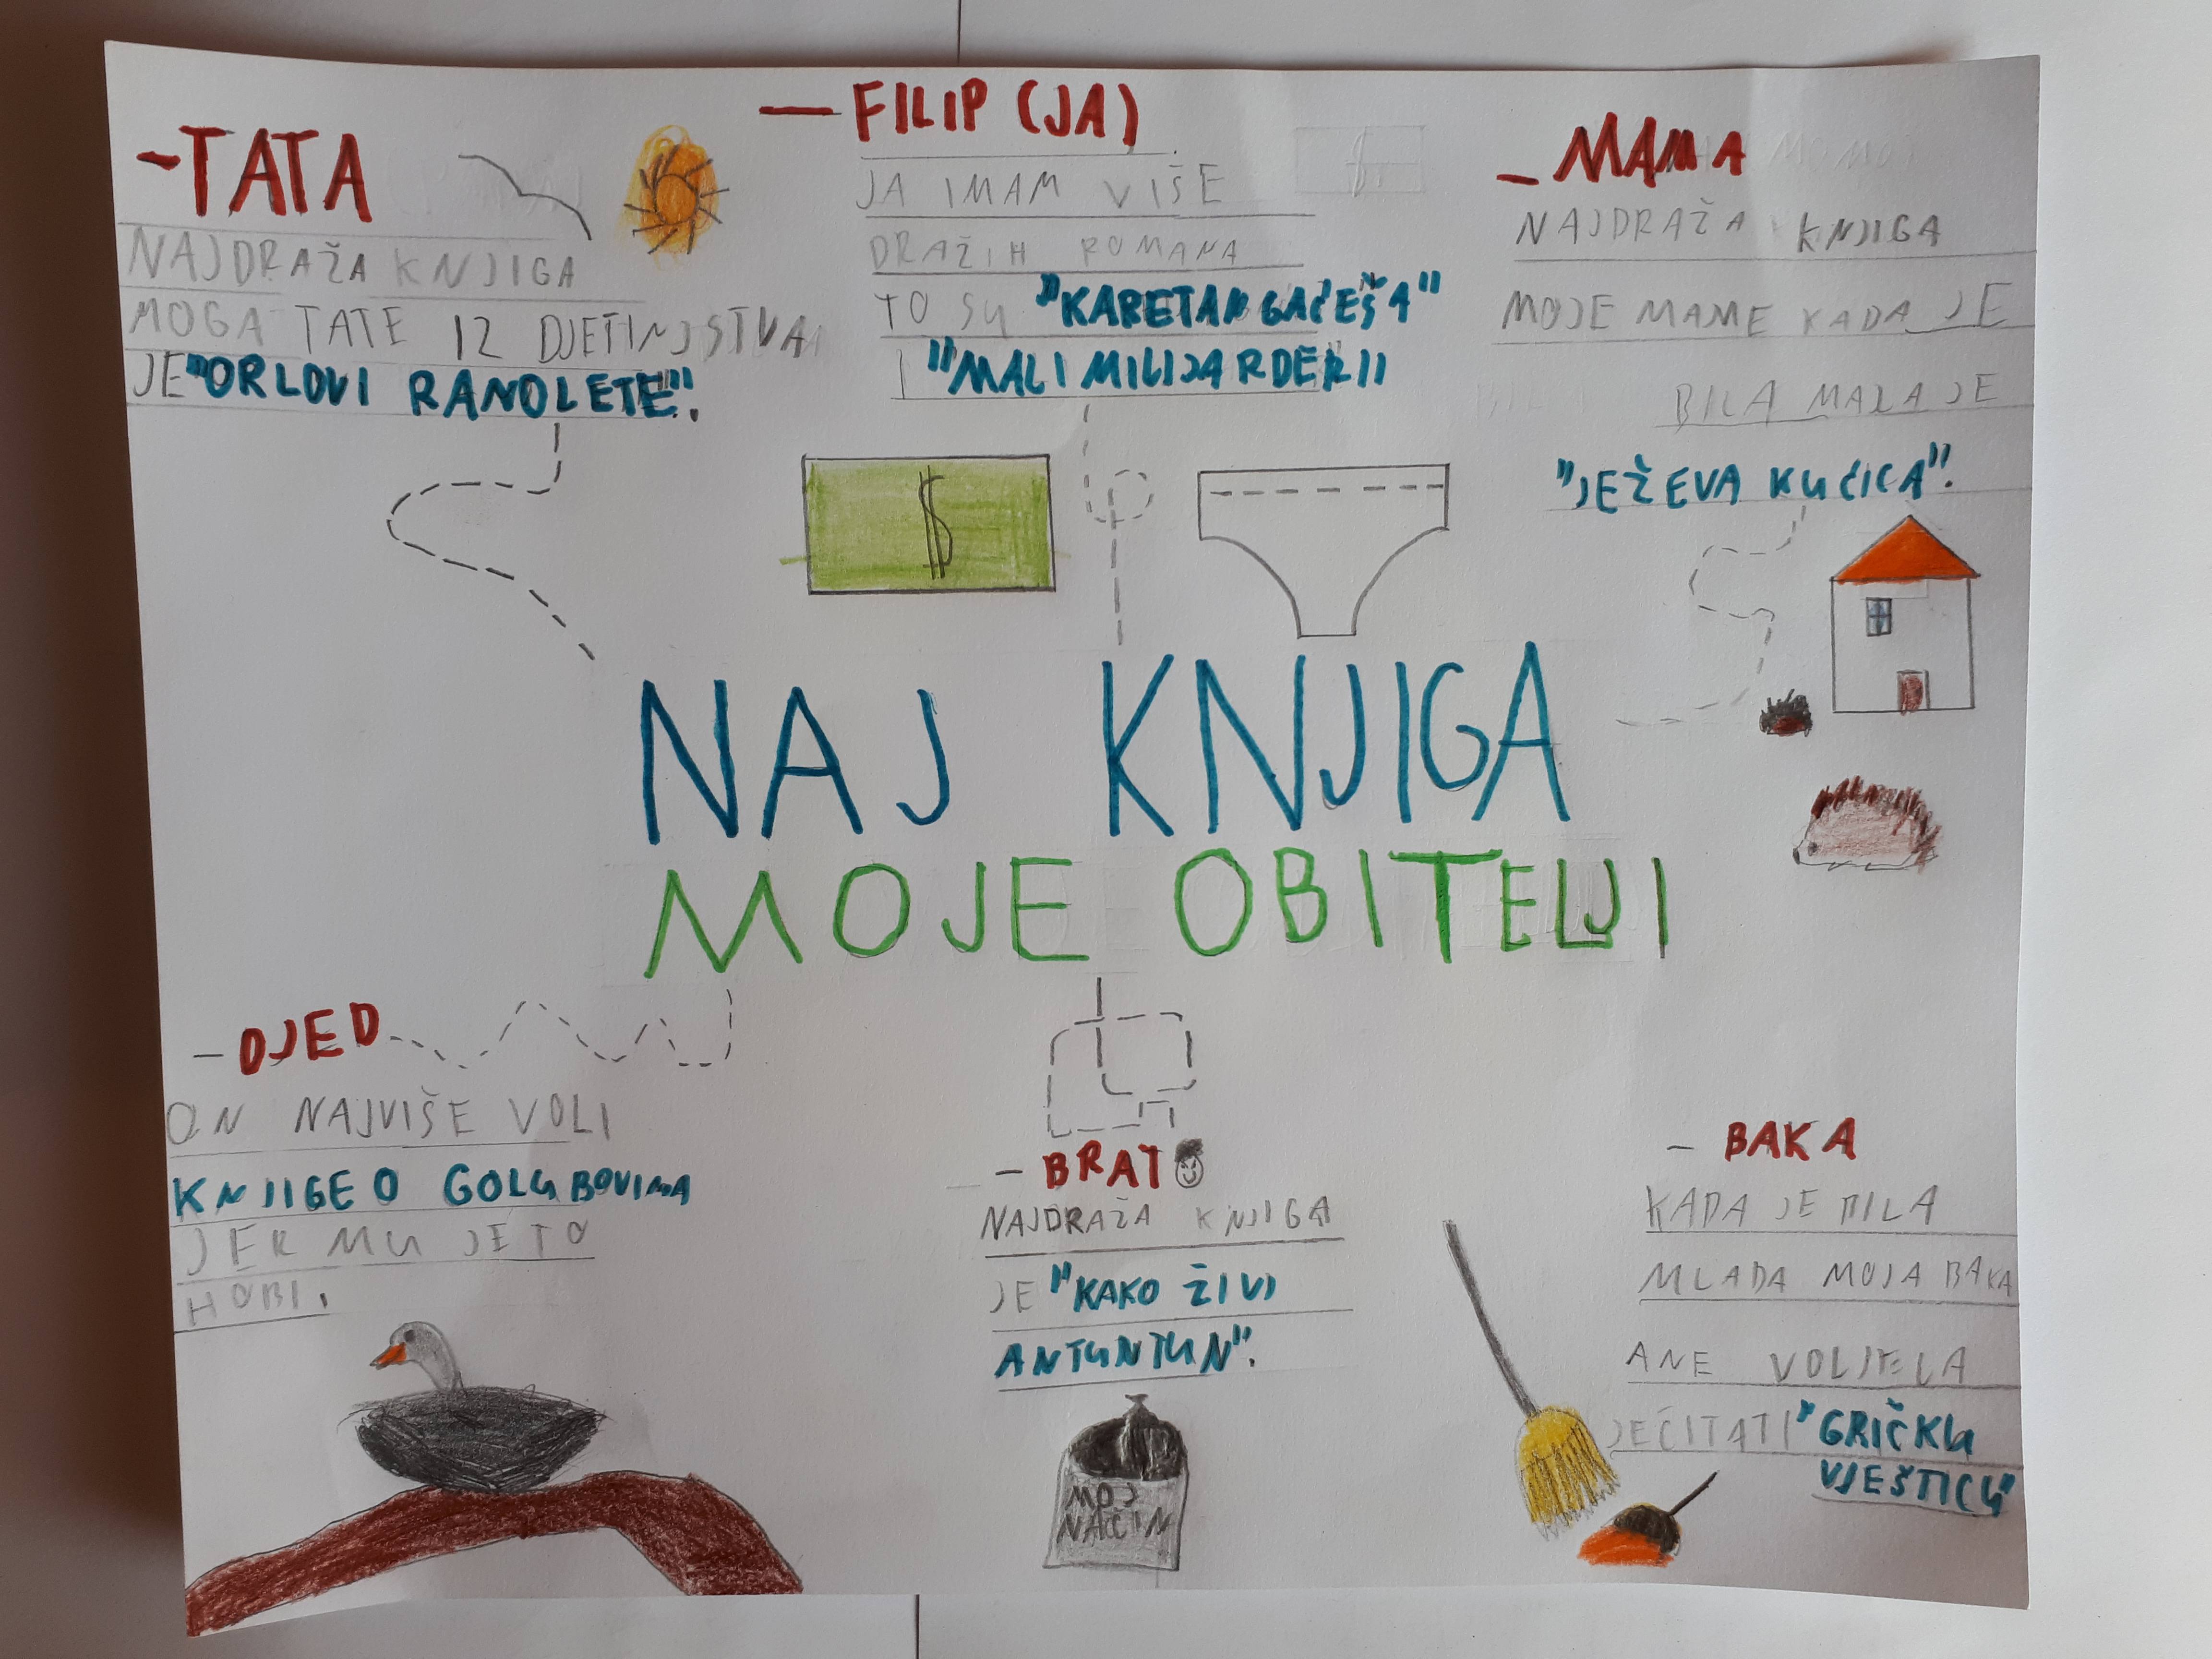 -TATA
NAJDRAŽA KNJIGA
MOGA TATE IZ DJETINJSTVA
JE "ORLOVI RANOLETE".
— FILIP (JA)
JA IMAM VIŠE
DRAŽIH ROMANA
TO SU "KAPETAN GAĆEŠA"
I "MALI MILIJARDER II
- MAMA
NAJDRAŽA KNJIGA
MOJE MAME KADA JE
BILA MALA JE
"JEŽEVA KUĆICA".
$
NAJ KNJIGA
MOJE OBITELJI
- DJED
ON NAJVIŠE VOLI
KNJIGE O GOLUBOVIMA
JER MU JE TO
HOBI.
- BRAT
NAJDRAŽA KNJIGA
JE "KAKO ŽIVI
ANTUNTUN".
MOJ
NAČIN
- BAKA
KADA JE BILA
MLADA MOJA BAKA
ANE VOLJELA
JE ČITATI "GRIČKU
VJEŠTICU"